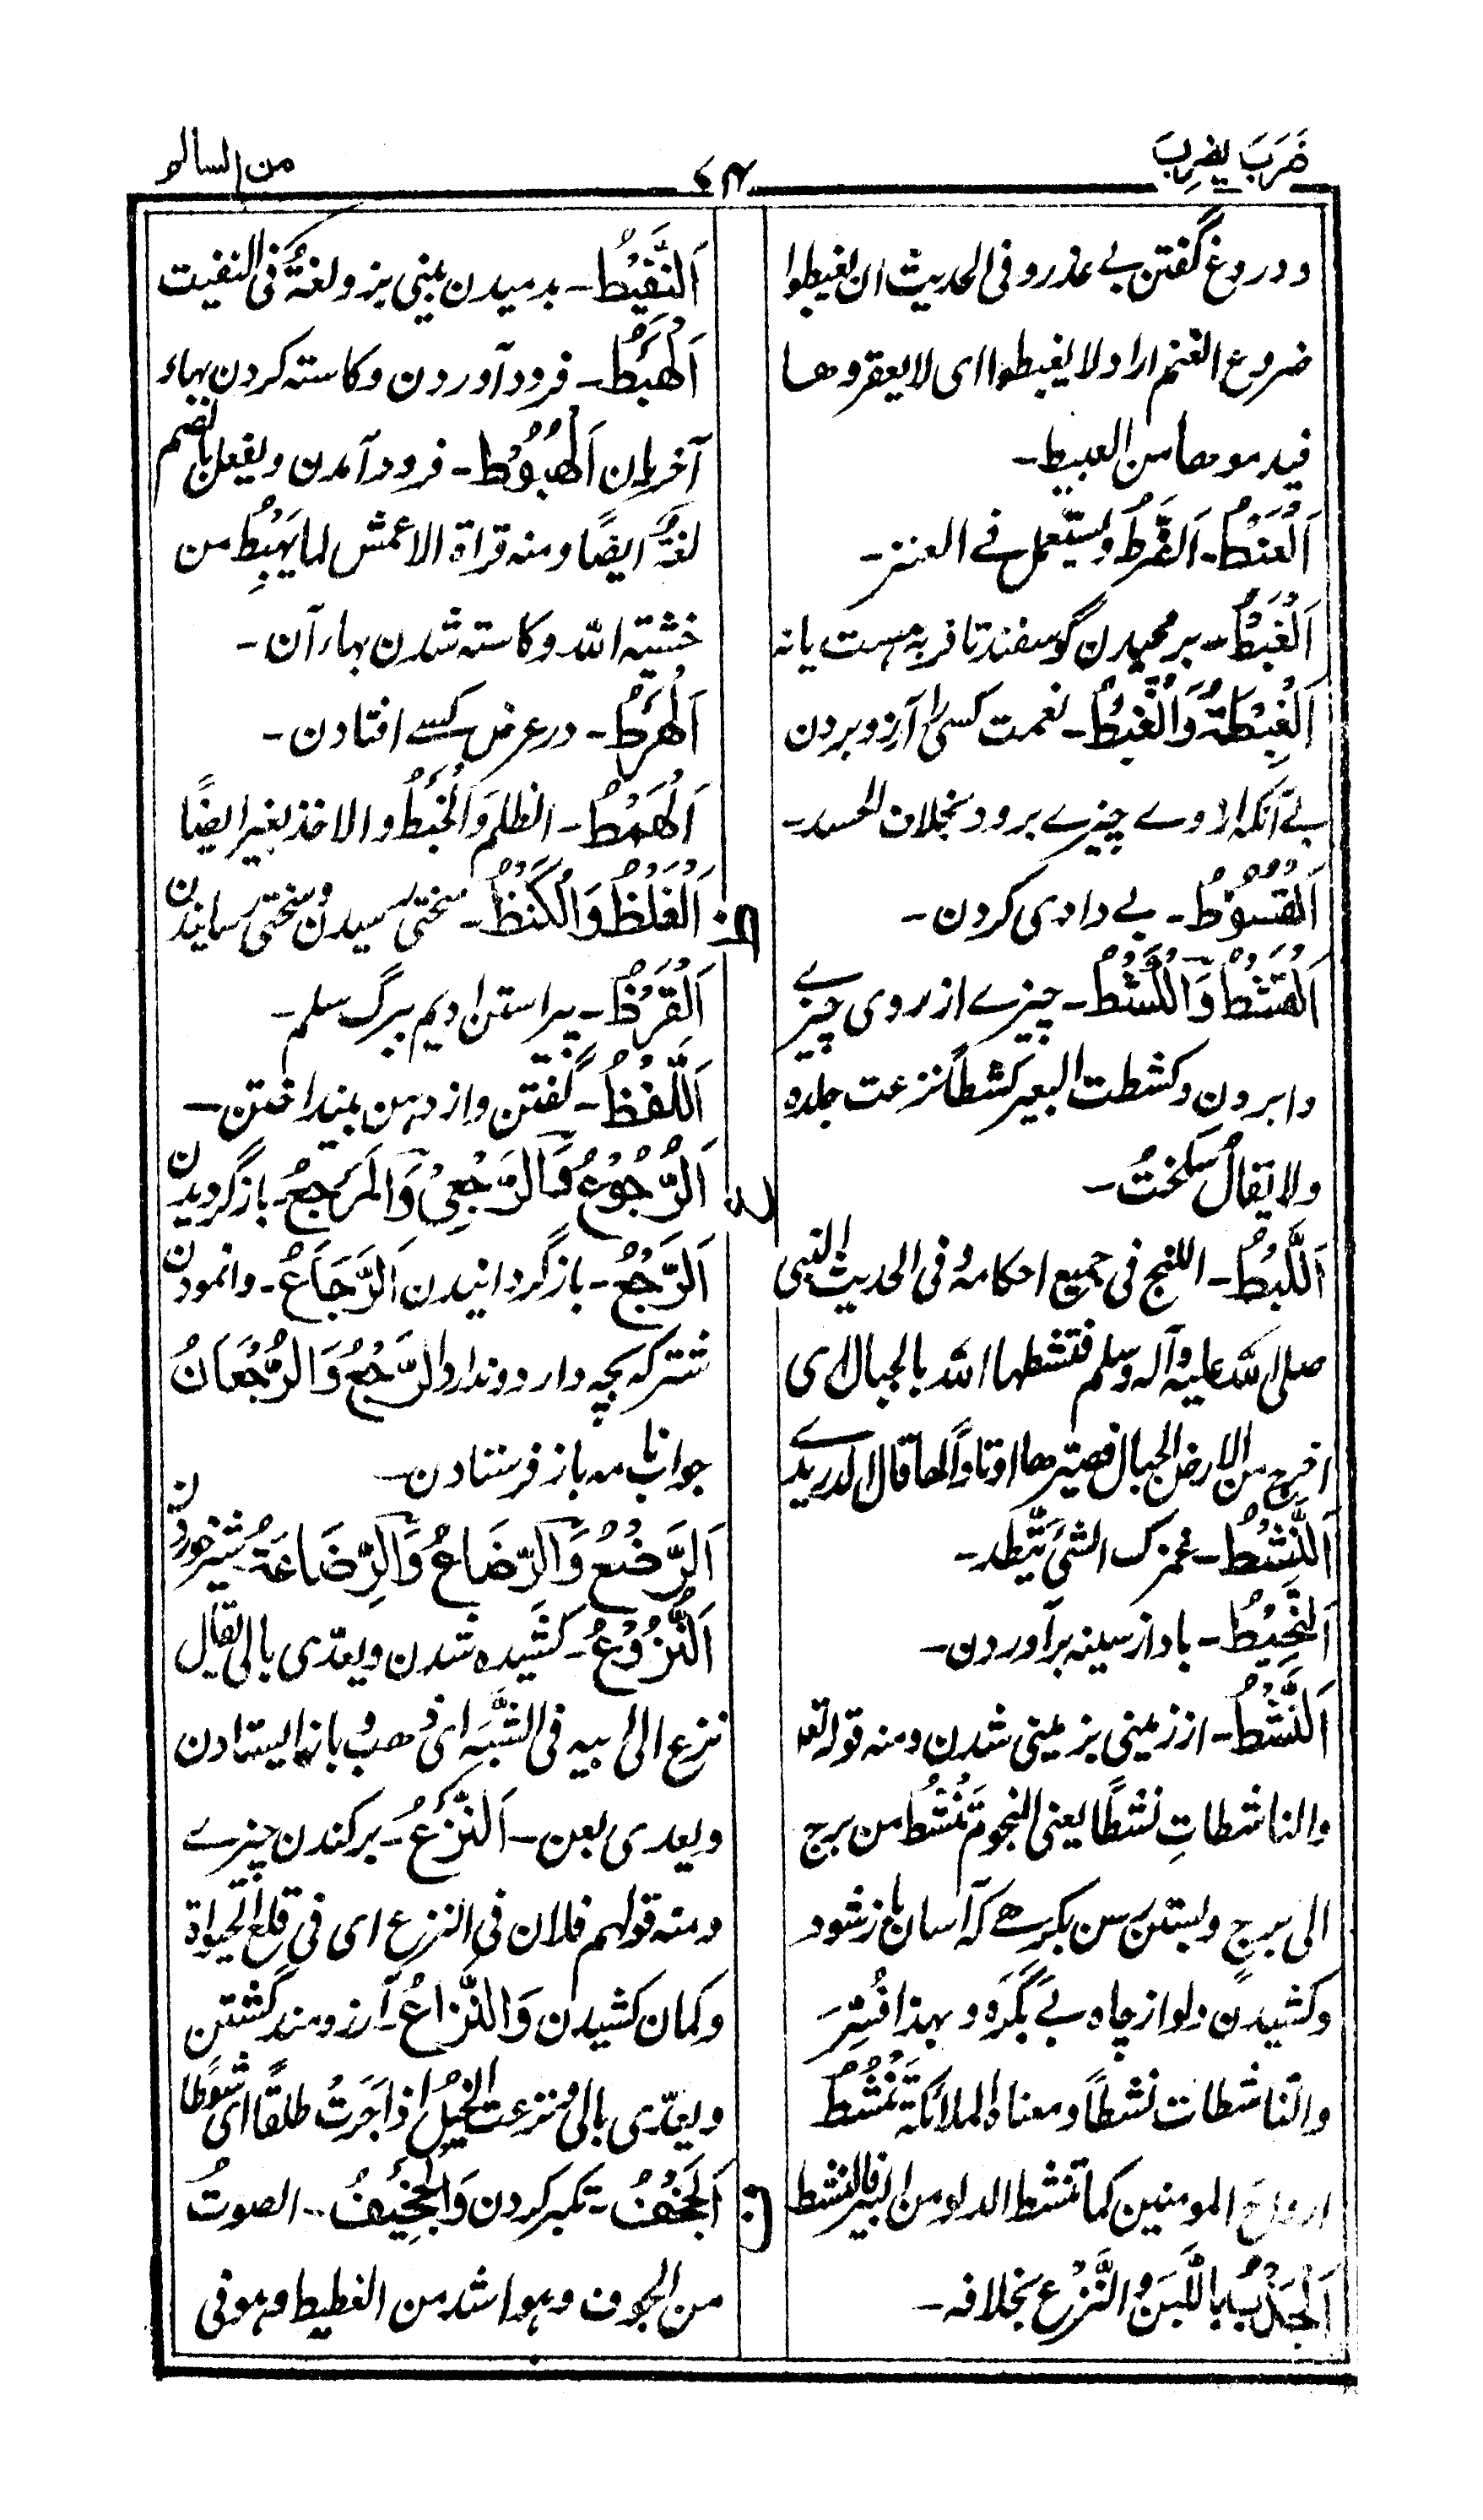 ضَرَبَ يضرِبَ
٤٧
من السالم
و دروغ گفتن بے عذر و فی الحدیث ان یغبطوا
ضروع الغنم اراد لا یغبطوا ای لا یعقروها
فیدموها من العبیط۔
اَلْعَنْطُ۔ اَلضَّرَطُ و یستعمل فے العنز۔
اَلْغَبْطُ۔ بر مجیدن گوسفند تا فربہ ہست یا نہ
اَلْغِبْطَةُ وَالْغَبْطُ۔ نعمت کسی را آرزو بردن
بے آنکہ از وے چیزے برود بخلاف الحسد۔
اَلْقُسُوْطُ۔ بے دادی کردن۔
اَلْقَشْطُ وَالْكَشْطُ۔ چیزے از روی چیزے
وا بردن و کشطت البعیر کشطاً نزعت جلده
ولا یقالُ سلختُ۔
اَللَّبْطُ۔ اللبج فی جمیع احکامہ و فی الحدیث النبی
صلی الله علیه وآله وسلم فنشطها الله بالجبال ای
اخرج من الارض الجبال فصیرها اوتاداً لها قاله الدریدے
اَلنَّشْطُ۔
اَلنَّحِیْطُ۔ باد از سینه برآوردن۔
اَلنَّشْطُ۔ از زمینی بزمینی شدن و منه قوله تعہ
والناشطاتِ نشطًا یعنی النجومَ تَنْشُطُ من برج
الی برجٍ و بستن رسن بگرہے کہ آسان باز شود
و کشیدن دلو از چاه بے بگره و بهذا فُسِّرَ
والنّاشطات نشطاً و معناه الملائکة تَنْشُطُ
ارواحَ المومنین کما تنشط الدلو من البیر فالنشط
اَلْجَذْبُ باللَّبَنِ والنَّزْع بخلافه۔
اَلنَّفِیْطُ۔ بدمیدن بینی بز و لغةٌ فی النفیت
اَلْهَبْطُ۔ فرود آوردن و کاسته کردن بهاء
آخریان اَلْهُبُوْطُ۔ فرود آمدن و یفعل بالضم
لغةٌ ایضًا و منه قراة الاعمش لما یَهْبِطُ من
خشیة الله و کاسته شدن بهاء آن۔
اَلْهَرْطُ۔ در عرض کسے افتادن۔
اَلْهَمْطُ۔ الظلم وَالْخَبْطُ والاخذ بغیر ایضًا
اَلْغَلْظُ وَالْكَنْظُ۔ سختی رسیدن و سختی رسانیدن
ظ
اَلْقَرْظُ۔ پیراستن ادیم ببرگ سلم۔
اَللَّفْظُ۔ گفتن و از دهن بینداختن۔
اَلرُّجُوْعُ وَالرَّجْعِیْ وَالْمَرْجِعُ۔ بازگردیدن
ع
اَلرَّجْعُ۔ بازگردانیدن اَلرَّجَاعُ۔ وانمودن
شتر که بچه دارد و ندارد وَالرَّجْعُ وَالرُّجْعَانُ
جواب نامه باز فرستادن۔
اَلرَّضْعُ وَالرَّضَاعُ وَالرِّضَاعَةُ شیر خوردن
اَلنُّزُوْعُ۔ کشیده شدن و یعدّی بالی یقال
نزع الی ابیه فی الشَّبَه ای ذهب و باز ایستادن
و یعدی بعن۔ اَلنَّزْعُ۔ برکندن چیزے
و منه قولهم فلان فی النزع ای فی قلع الحیوة
و کمان کشیدن وَالنِّزَاعُ۔ آرزومند گشتن
و یعدّی بالی و نزعت الخیلُ اذا جَرَتْ طلقًا ای شوطًا
اَلْجَخْفُ۔ تکبر کردن وَالْجَخِیْفُ۔ الصوتُ
ف
من الجوف و هو اشد من الغطیط و هو فی